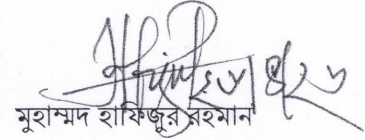 মুহাম্মদ হাফিজুর রহমান